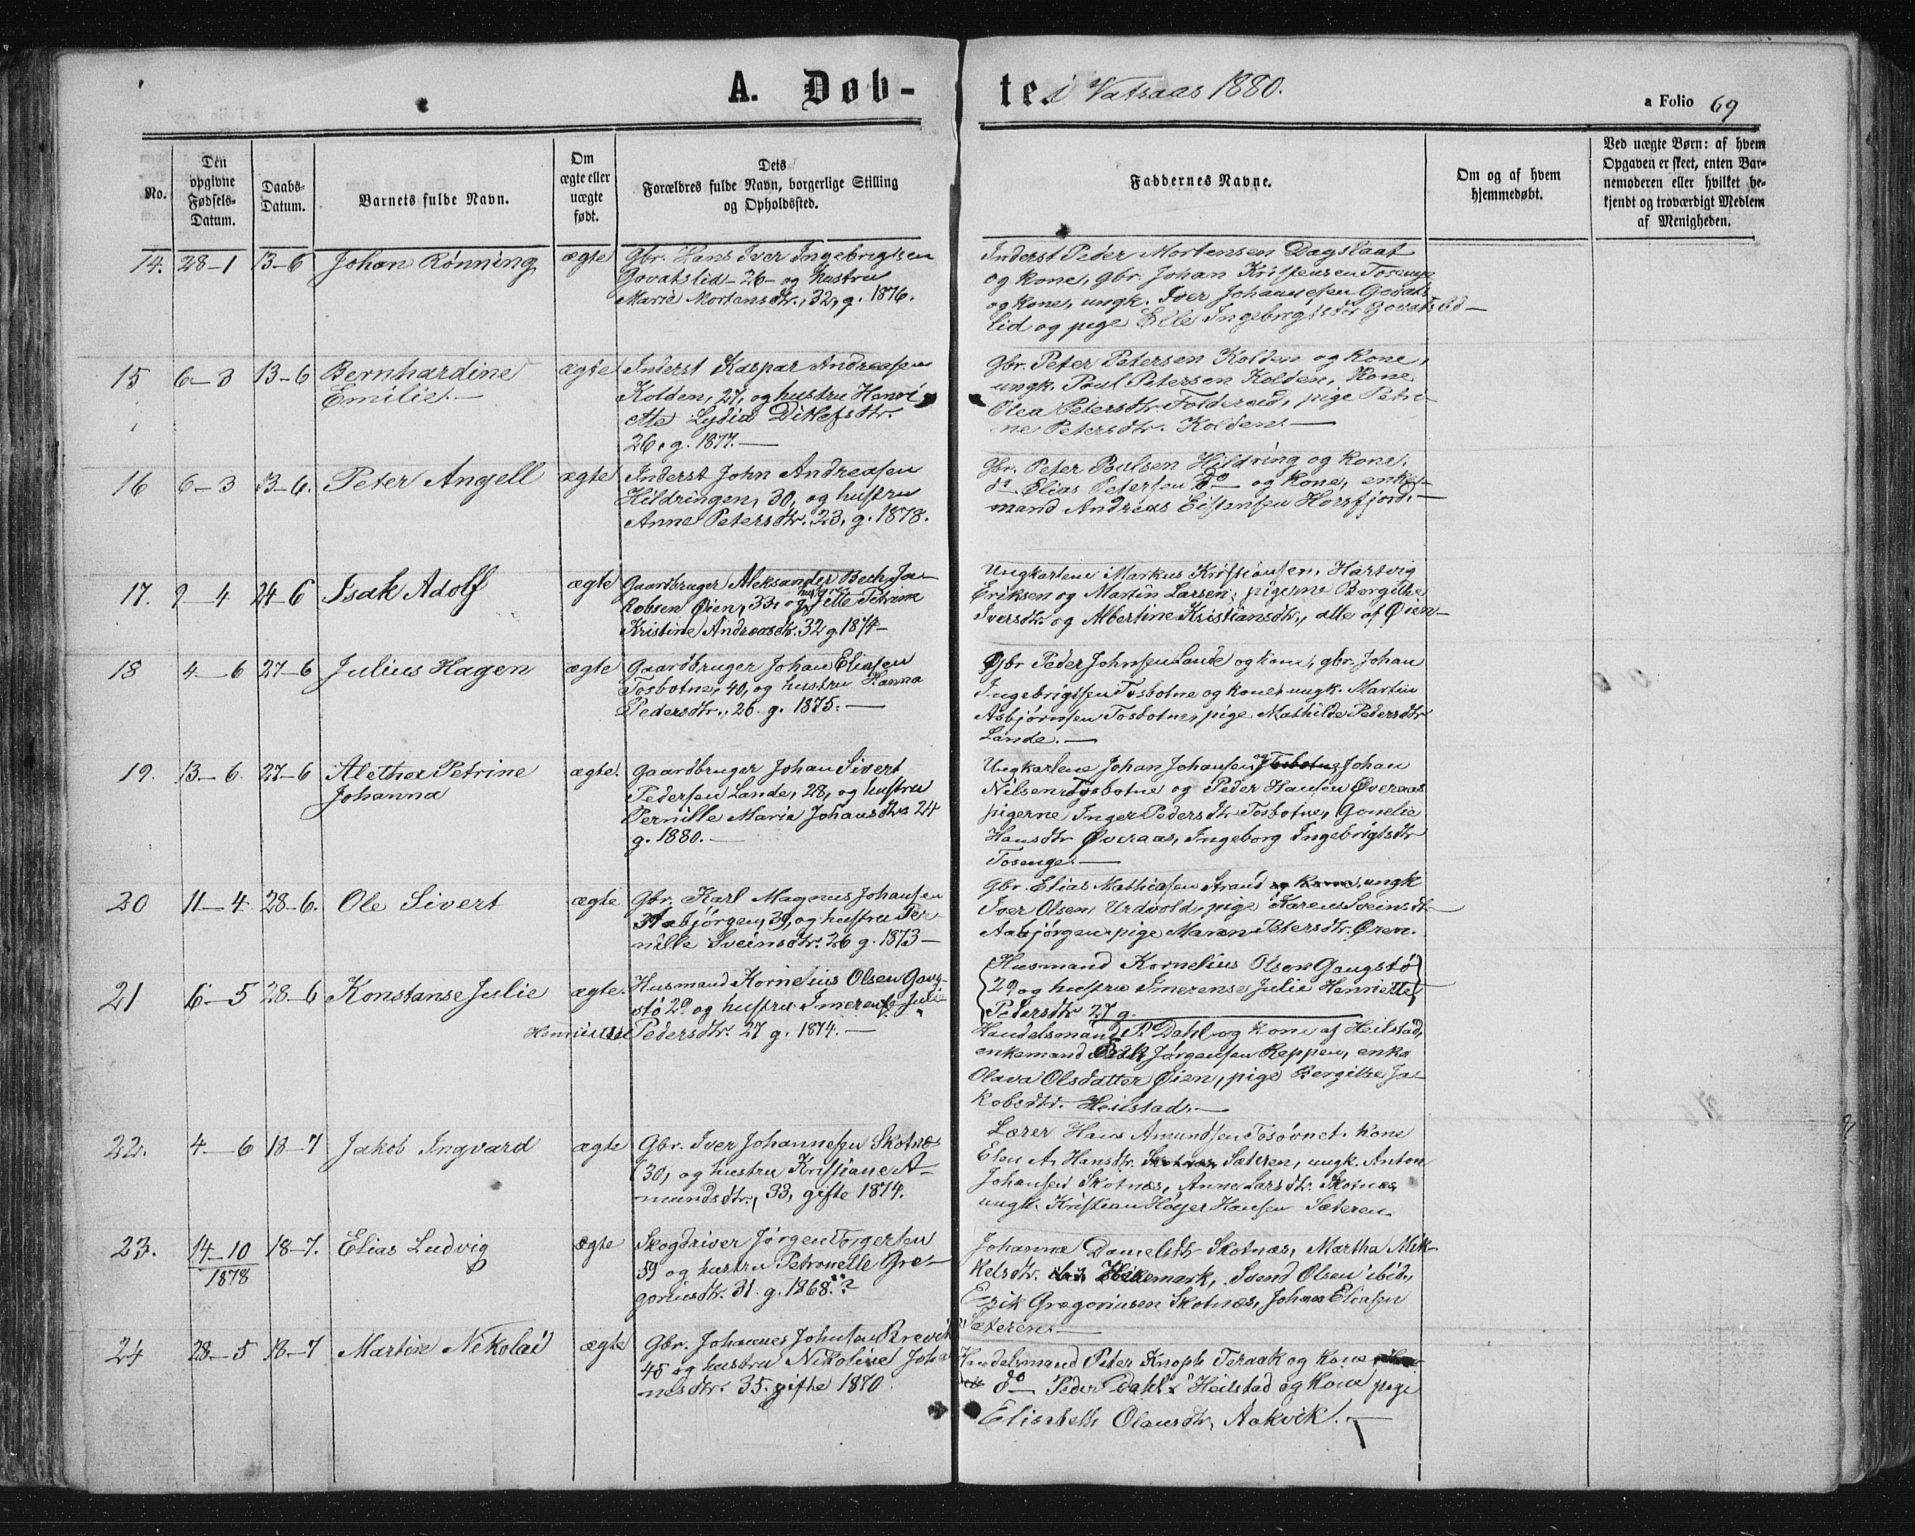 A. Døb-
te. i Vatsaas 1880.
a Folio 69
No.
Den
opgivne
Fødsels-
Datum.
Daabs-
Datum.
Barnets fulde Navn.
Om
ægte eller
uægte
født.
Dets
Forældres fulde Navn, borgerlige Stilling
og Opholdssted.
Faddernes Navne.
Om og af hvem
hjemmedøbt.
Ved uægte Børn: af hvem
Opgaven er skeet, enten Bar-
nemoderen eller hvilket be-
kjendt og troværdigt Medlem
af Menigheden.
14. 28-1 13-6 Johan Rönning ægte
Gbr. Hans Iver Ingebrigtsen
Govatslid - 26 - og hustru
Marie Mortensdtr., 32, g. 1876.
Inderst Peder Mortensen Dagslaat
og kone, gbr. Johan Kristensen Tosenge
og kone, ungk. Iver Johannesen Govats
lid og pige Elle Ingebrigtsdtr Govatslid -
15 6-3 13-6 Bernhardine
Emilie. - ægte
Inderst Kaspar Andreasen
Kolden, 27, og hustru Henri
ette Lydia Ditlefsdtr.
26, g. 1877. -
Gbr. Peter Petersen Kolden og kone,
ungk. Poul Petersen Kolden, Kone
Olea Petersdtr. Foldereid, pige Petri
ne Petersdtr. Kolden. -
16 6-3 13-6. Peter Angell ægte
Inderst John Andreasen
Hildringen, 30, og hustru
Anne Petersdtr. 23, g. 1878.
Gbr. Peter Poulsen Hildring og kone,
do Elias Petersen do og kone, enke-
mand Andreas Eistensen Horsfjord. -
17. 2-4 24-6 Isak Adolf ægte
Gaardbruger Aleksander Bech Ja-
kobsen Øien, 33, og hustru Petrine
Kristine Andreasdtr. 32 g. 1874 -
Ungkarlene Markus Kristiansen, Hartvig
Eriksen og Martin Larsen; pigerne Bergitte
Iversdtr. og Albertine Kristiansdtr., alle af Øien -
18 4-6 27-6 Julius Hagen ægte
Gaardbruger Johan Eliasen
Tosbotne, 40, og hustru Hanna
Pedersdtr., 26. g. 1875. -
Gbr Peder Johnsen Lande og kone, gbr. Johan
Ingebrigtsen Tosbotne og kone, ungk. Martin
Asbjørnsen Tosbotne, pige Mathilde Pedersdtr
Lande. -
19. 13-6. 27-6 Alethea Petrine
Johanna ægte.
Gaardbruger Johan Sivert
Pedersen Lande, 28, og hustru
Pernille Maria Johansdtr. 24
g. 1880. -
Ungkarlene Johan Johansen Tosbotne, Johan
Nilsen Tosbotne og Peder Hansen Øveraas
pigerne Inger Pedersdtr Tosbotne, Gonelie
Hansdtr Øveraas, Ingeborg Ingebrigtsdtr
Tosenge. -
20 11-4. 28-6. Ole Sivert ægte
Gbr. Karl Magnus Johansen
Aabjörgen, 39, og hustru Per-
nille Sveinsdtr. 26 g. 1873 -
Gbr. Elias Mathiasen Strand og kone, ungk
Iver Olsen Urdvold, pige Karen Sveinsdtr
Aabjörgen, pige Maren Petersdtr. Øren.
21 6-5 28-6 Konstanse Julie ægte.
Husmand Kornelius Olsen Gang-
stö 29 og hustru Imerense Julie
Henriette Pedersdtr. 27 g. 1874. -
Husmand Kornelius Olsen Gangstö
29 og hustru Imerense Julie Henriette
Pedersdtr 27 g.
Handelsmand P. Dahl og kone af Heilstad,
enkemand Erik Jørgensen Reppen, enke
Olava Olsdatter Øien, pige Bergitte Ja-
kobsdtr. Heilstad. -
22. 4-6 18-7 Jakob Ingvard ægte
Gbr. Iver Johannesen Skotnæs
(30, og hustru Kristiane A-
mundsdtr., 33, gifte 1874.
Lærer Hans Amundsen Tosövnet. kone
Elen A. Hansdtr. Skotnæs Sæteren, ungk. Anton
Johansen Skotnæs, Anne Larsdtr. Skotnæs,
ungk. Kristian Höyer Hansen Sæteren.
23. 14-10 18-7. Elias Ludvig ægte
1878
Skogdriver Jørgen Torgersen
59 og hustru Petronelle Gre-
goriusdtr. 31. g. 1868.?
Johanna Danielsdtr Skotnæs, Martha Mik-
kelsdtr. ibid. Hekemark, Svend Olsen ibid,
Erik Gregoriusen Skotnæs, Johan Eliasen
Sæteren. -
24 28-5 18-7 Martin Nikolai ægte
Gbr. Johannes Johnsen Brevik
45 og hustru Nikoline Joha
nesdtr. 35. gifte 1870.
Handelsmand Peter Knoph Teraak og kone,
do Peder Dahl Heilstad og kone pige
Elisabeth Olausdtr. Aakvik. -